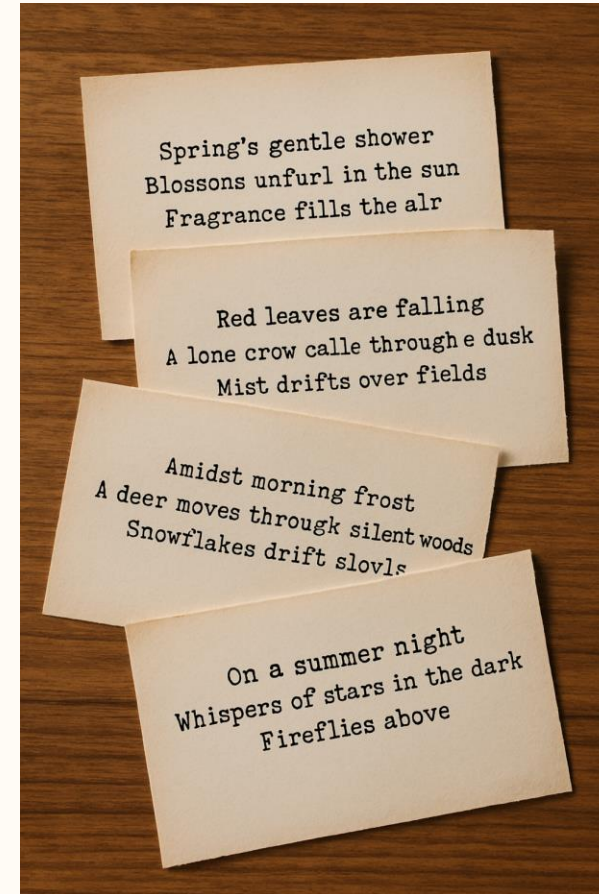 Spring's gentle shower
Blossons unfurl in the sun
Fragrance fills the alr
Red leaves are falling
A lone crow calle through e dusk
Mist drifts over fields
Amidst morning frost
A deer moves througk silent woods
Snowflakes drift
On a summer night
Whispers of stars in the dark
Fireflies above